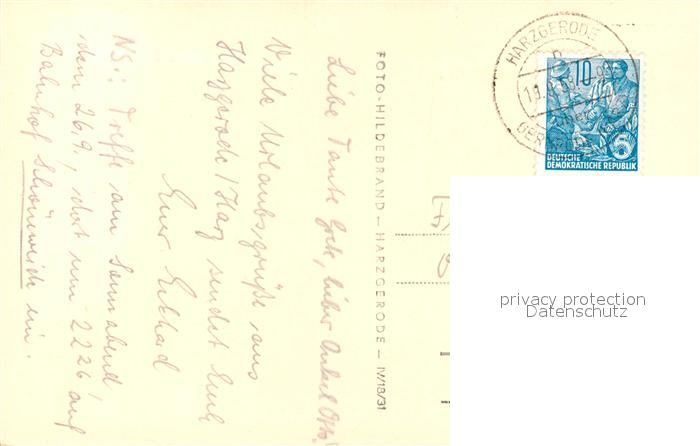 Liebe Tante Grete, lieber Onkel Otto!
Viele Urlaubsgrüße aus
Harzgerode / Harz sendet Euch
Euer Eckhard
NS.: Treffe am Sonnabend
dem 26.9., dort um 22²⁶ auf
Bahnhof Schöneweide ein.
FOTO-HILDEBRAND — HARZGERODE — IV/18/31
HARZGERODE
10
DEUTSCHE
DEMOKRATISCHE REPUBLIK
privacy protection
Datenschutz